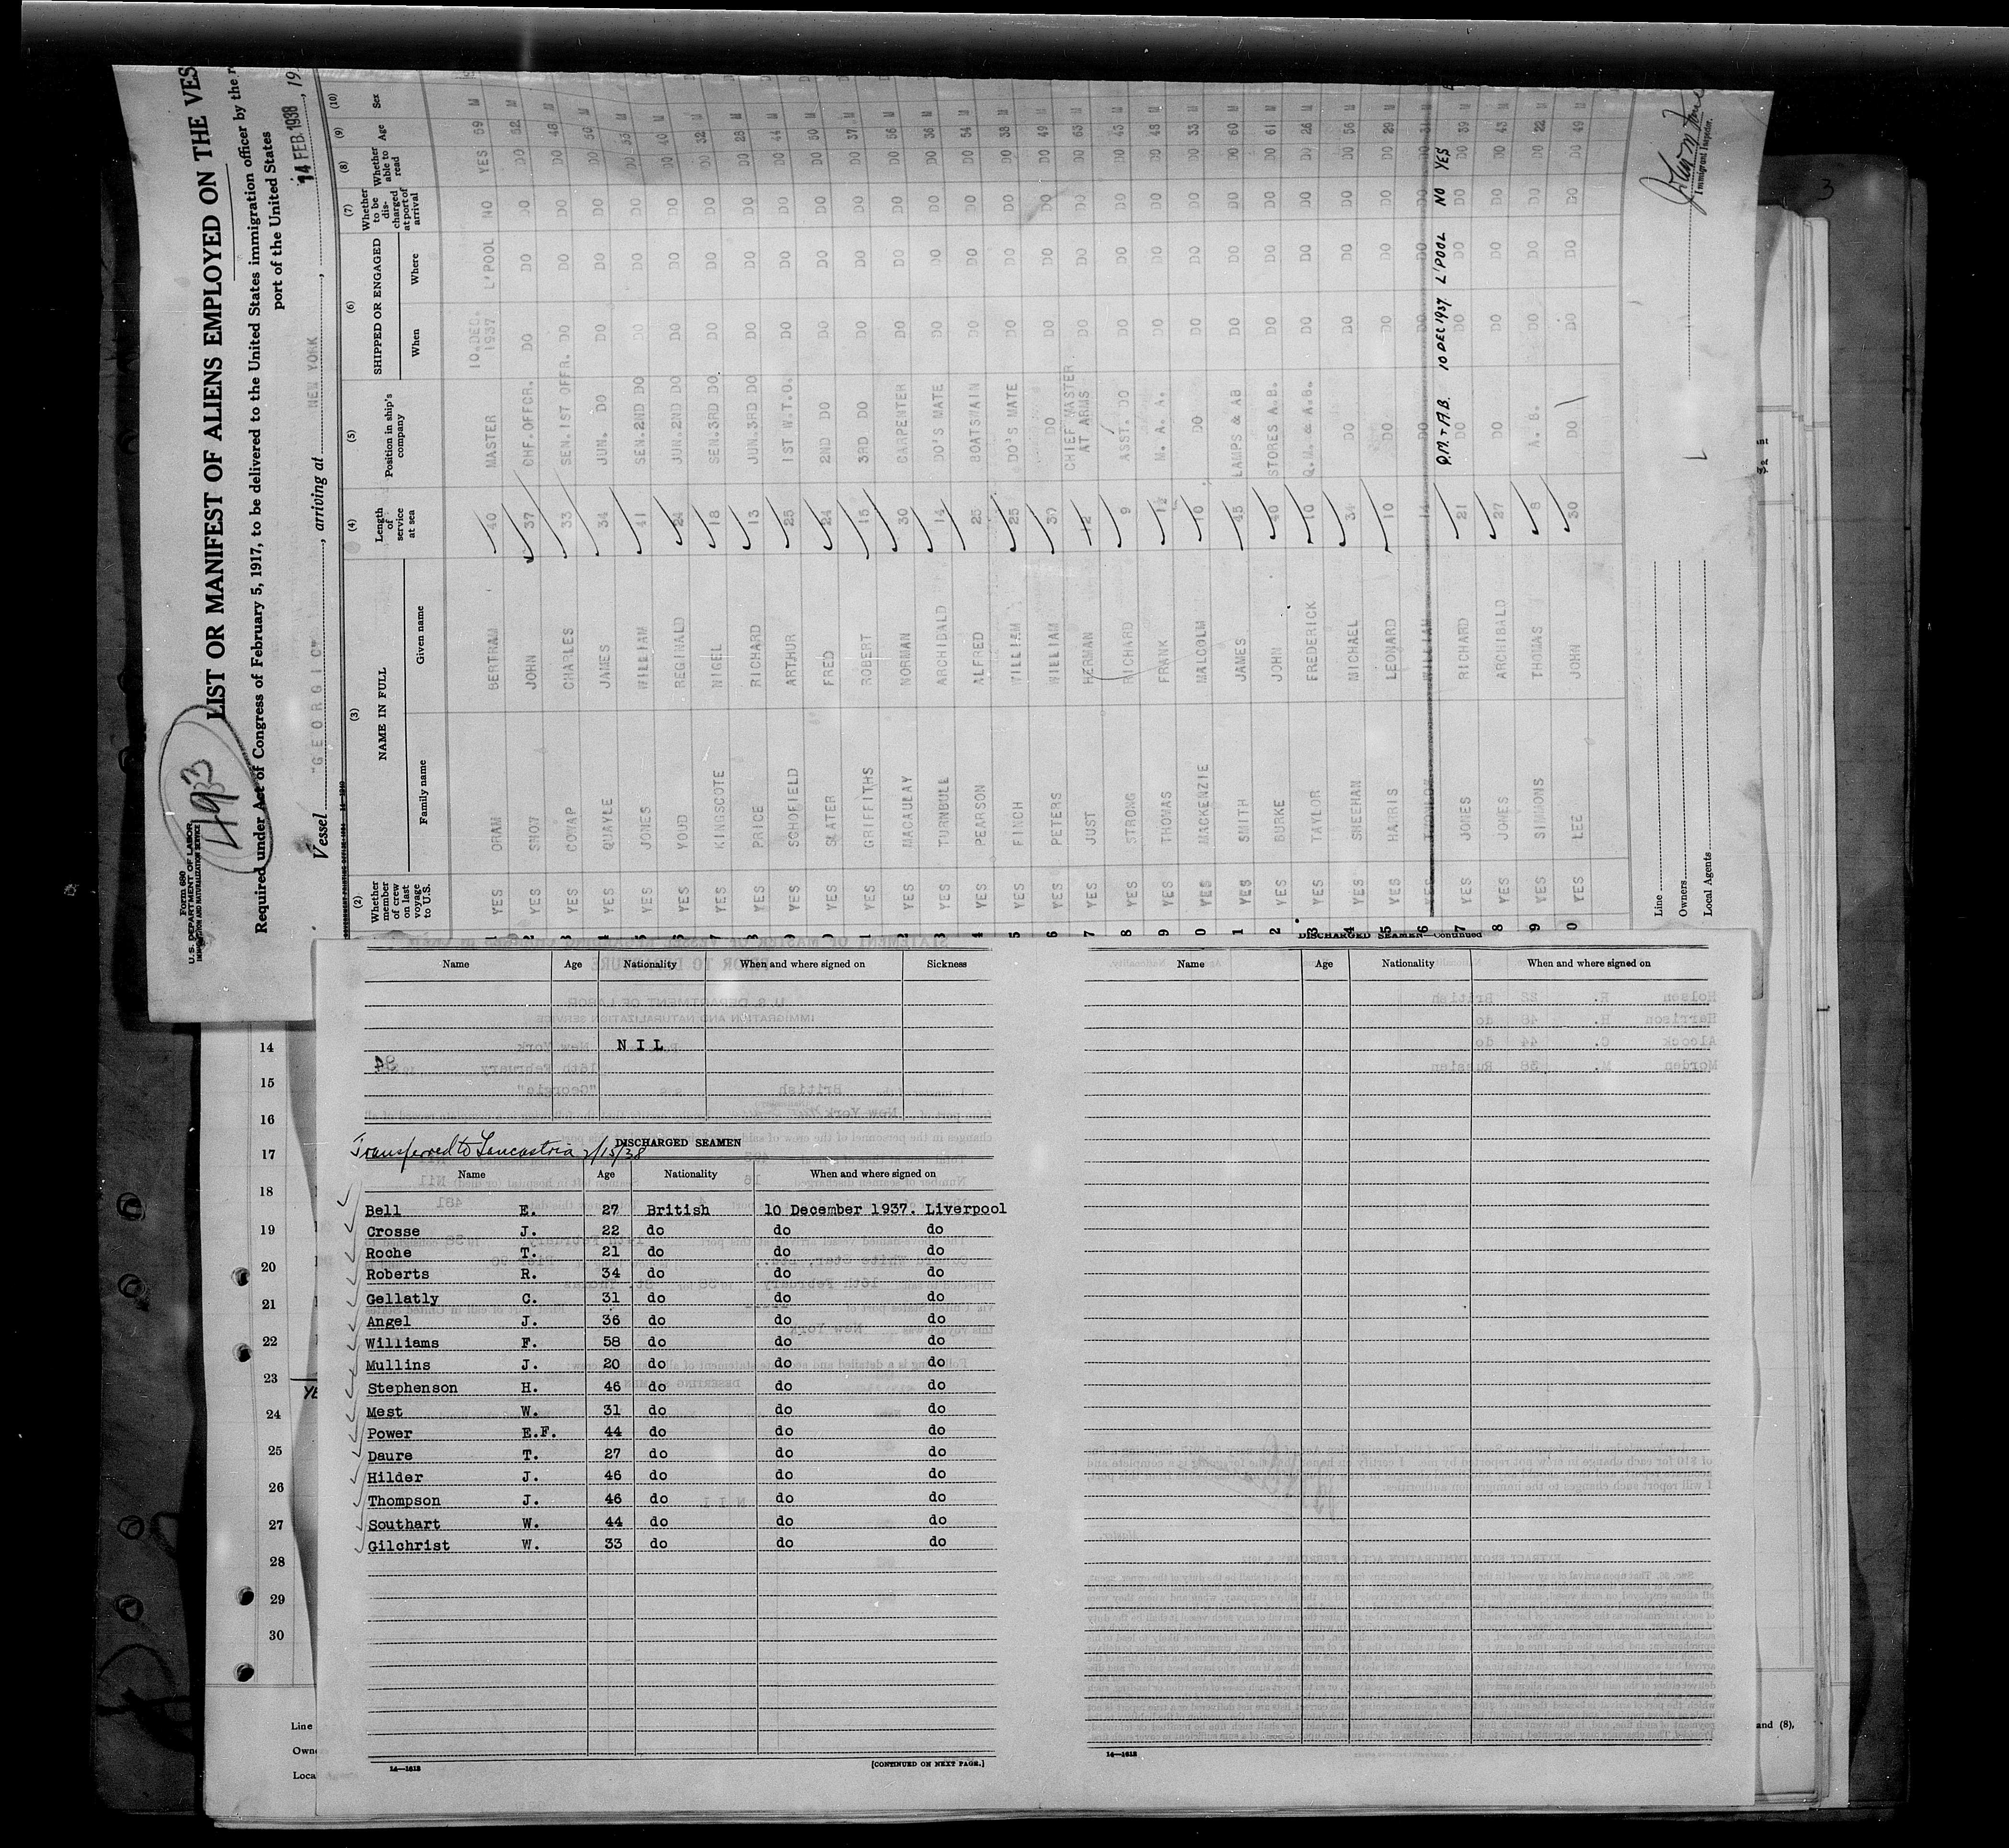 Form 680
U.S. DEPARTMENT OF LABOR
IMMIGRATION AND NATURALIZATION SERVICE
4933
LIST OR MANIFEST OF ALIENS EMPLOYED ON THE VES
Required under Act of Congress of February 5, 1917, to be delivered to the United States immigration officer by the r
port of the United States
Vessel "GEORGIC", arriving at NEW YORK, 14 FEB. 1938, 19
(2) (3) (4) (5) (6) (7) (8) (9) (10)
Whether member of crew on last voyage to U.S. NAME IN FULL Family name Given name Length of service at sea Position in ship's company SHIPPED OR ENGAGED When Where Whether to be discharged at port of arrival Whether able to read Age Sex
1 YES ORAM BERTRAM 40 MASTER 10.DEC. 1937 L'POOL NO YES 59 M
2 YES SNOW JOHN 37 CHF.OFFCR. DO DO DO DO 52 M
3 YES COWAP CHARLES 33 SEN.1ST OFFR. DO DO DO DO 48 M
4 YES QUAYLE JAMES 34 JUN. DO DO DO DO DO 50 M
5 YES JONES WILLIAM 41 SEN.2ND DO DO DO DO DO 53 M
6 YES YOUD REGINALD 24 JUN.2ND DO DO DO DO DO 40 M
7 YES KINGSCOTE NIGEL 18 SEN.3RD DO. DO DO DO DO 32 M
8 YES PRICE RICHARD 13 JUN.3RD DO DO DO DO DO 28 M
9 YES SCHOFIELD ARTHUR 25 1ST W.T.O. DO DO DO DO 44 M
0 YES SLATER FRED 24 2ND DO DO DO DO DO 50 M
1 YES GRIFFITHS ROBERT 15 3RD DO DO DO DO DO 37 M
2 YES MACAULAY NORMAN 30 CARPENTER DO DO DO DO 56 M
3 YES TURNBULL ARCHIBALD 14 DO'S MATE DO DO DO DO 36 M
4 YES PEARSON ALFRED 25 BOATSWAIN DO DO DO DO 54 M
5 YES FINCH WILLIAM 25 DO'S MATE DO DO DO DO 38 M
6 YES PETERS WILLIAM 30 DO DO DO DO DO 49 M
7 YES JUST HERMAN 12 CHIEF MASTER AT ARMS DO DO DO DO 63 M
8 YES STRONG RICHARD 9 ASST. DO DO DO DO DO 43 M
9 YES THOMAS FRANK M. A. A. DO DO DO DO 48 M
0 YES MACKENZIE MALCOLM 10 DO DO DO DO DO 33 M
1 YES SMITH JAMES 45 LAMPS & AB DO DO DO DO 60 M
2 YES BURKE JOHN 40 STORES A.B. DO DO DO DO 61 M
3 YES TAYLOR FREDERICK 10 Q.M. & A.B. DO DO DO DO 26 M
4 YES SHEEHAN MICHAEL 34 DO DO DO DO DO 56 M
5 YES HARRIS LEONARD 10 DO DO DO DO DO 29 M
6 YES WILLIAM 14 DO DO DO DO DO 31 M
Q.M. & A.B. 10 DEC 1937 L'POOL NO YES
7 YES JONES RICHARD 21 DO DO DO DO DO 39 M
8 YES JONES ARCHIBALD 27 DO DO DO DO DO 43 M
9 YES SIMMONS THOMAS 8 A. B. DO DO DO DO 22 M
0 YES LEE JOHN 30 DO DO DO DO DO 49 M
Line
Owners
Local Agents
Immigrant Inspector.
3
Name Age Nationality When and where signed on Sickness
NIL
Transferred to Lancastria 2/15/38
DISCHARGED SEAMEN
Name Age Nationality When and where signed on
Bell E. 27 British 10 December 1937. Liverpool
Crosse J. 22 do do do
Roche T. 21 do do do
Roberts R. 34 do do do
Gellatly C. 31 do do do
Angel J. 36 do do do
Williams F. 58 do do do
Mullins J. 20 do do do
Stephenson H. 46 do do do
Mest W. 31 do do do
Power E.F. 44 do do do
Daure T. 27 do do do
Hilder J. 46 do do do
Thompson J. 46 do do do
Southart W. 44 do do do
Gilchrist W. 33 do do do
14—1613
[CONTINUED ON NEXT PAGE.]
DISCHARGED SEAMEN—Continued
Name Age Nationality When and where signed on
14—1613
14
15
16
17
18
19
20
21
22
23 YE
24
25
26
27
28
29
30
Line
Owne
Loca
and (8),